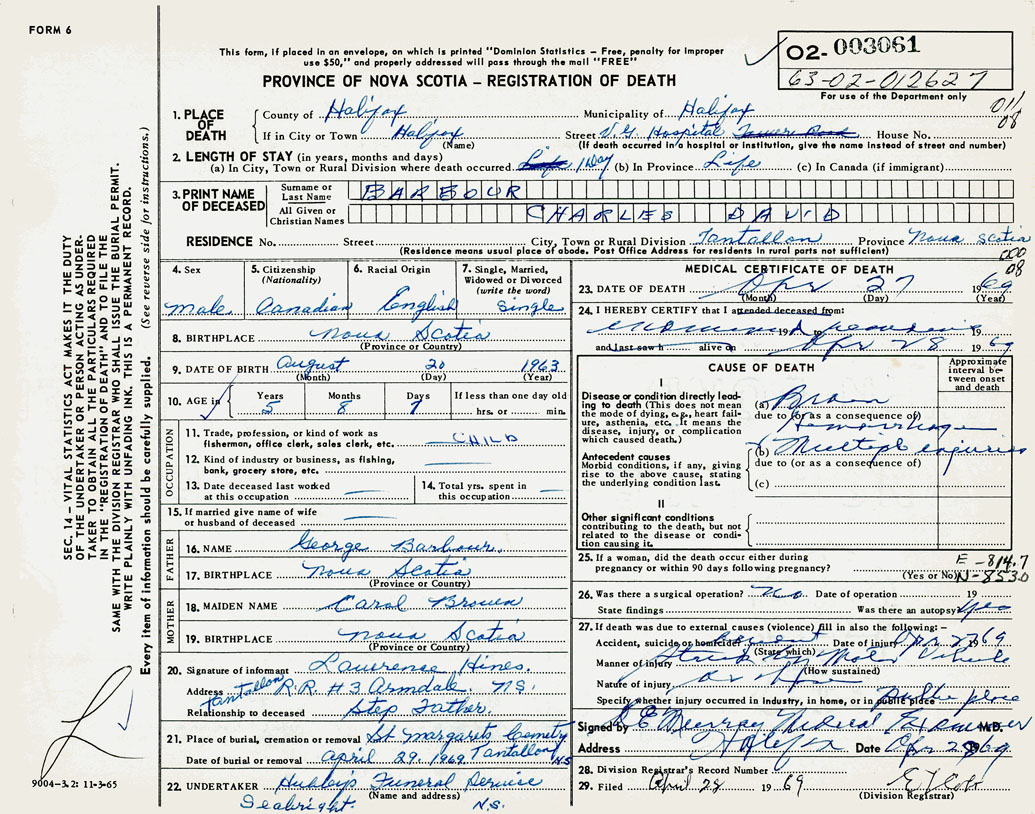 FORM 6
This form, if placed in an envelope, on which is printed "Dominion Statistics – Free, penalty for improper
use $50," and properly addressed will pass through the mail "FREE"
PROVINCE OF NOVA SCOTIA – REGISTRATION OF DEATH
02- 003061
63-02-012627
For use of the Department only
011
08
1. PLACE OF DEATH
County of Halifax Municipality of Halifax
If in City or Town Halifax (Name) Street V.G. Hospital House No.
(If death occurred in a hospital or institution, give the name instead of street and number)
2. LENGTH OF STAY (in years, months and days)
(a) In City, Town or Rural Division where death occurred Life 1 Day (b) In Province Life (c) In Canada (if immigrant)
3. PRINT NAME OF DECEASED
Surname or Last Name BARBOUR
All Given or Christian Names CHARLES DAVID
RESIDENCE No. Street City, Town or Rural Division Tantallon Province Nova Scotia
(Residence means usual place of abode. Post Office Address for residents in rural parts not sufficient)
000
08
4. Sex male
5. Citizenship (Nationality) Canadian
6. Racial Origin English
7. Single, Married, Widowed or Divorced (write the word) Single
8. BIRTHPLACE Nova Scotia
(Province or Country)
9. DATE OF BIRTH August 20 1963
(Month) (Day) (Year)
10. AGE in Years 5 Months 8 Days 7 If less than one day old hrs. or min.
OCCUPATION
11. Trade, profession, or kind of work as fisherman, office clerk, sales clerk, etc. CHILD
12. Kind of industry or business, as fishing, bank, grocery store, etc.
13. Date deceased last worked at this occupation
14. Total yrs. spent in this occupation
15. If married give name of wife or husband of deceased
FATHER
16. NAME George Barbour.
17. BIRTHPLACE Nova Scotia
(Province or Country)
MOTHER
18. MAIDEN NAME Carol Brown
19. BIRTHPLACE Nova Scotia
(Province or Country)
20. Signature of informant Lawrence Hines.
Address Tantallon R.R. #3 Armdale. N.S.
Relationship to deceased Step Father.
21. Place of burial, cremation or removal St. Margarets Cemetry Tantallon NS
Date of burial or removal April 29. 1969.
22. UNDERTAKER Hubley's Funeral Service
(Name and address)
Seabright. N.S.
MEDICAL CERTIFICATE OF DEATH
23. DATE OF DEATH Apr 27 1969
(Month) (Day) (Year)
24. I HEREBY CERTIFY that I attended deceased from:
19 to 19
and last saw h alive on Apr 28 1969
CAUSE OF DEATH
Approximate interval between onset and death
I
Disease or condition directly leading to death (This does not mean the mode of dying, e.g., heart failure, asthenia, etc. It means the disease, injury, or complication which caused death.)
(a) Brain
due to (or as a consequence of)
Hemorrhage
Antecedent causes
Morbid conditions, if any, giving rise to the above cause, stating the underlying condition last.
(b) Multiple injuries
due to (or as a consequence of)
(c)
II
Other significant conditions contributing to the death, but not related to the disease or condition causing it.
25. If a woman, did the death occur either during pregnancy or within 90 days following pregnancy? (Yes or No)
E-814.7
N-853.0
26. Was there a surgical operation? No. Date of operation 19
State findings Was there an autopsy? Yes
27. If death was due to external causes (violence) fill in also the following:–
Accident, suicide or homicide? Accident Date of injury Apr 27 69
(State which)
Manner of injury Struck by Motor Vehicle
(How sustained)
Nature of injury As above
Specify whether injury occurred in industry, in home, or in public place Public place
Signed by Murray Medical Examiner M.D.
Address Halifax Date Apr 28 1969
28. Division Registrar's Record Number
29. Filed April 28 1969
(Division Registrar)
SEC. 14 – VITAL STATISTICS ACT MAKES IT THE DUTY
OF THE UNDERTAKER OR PERSON ACTING AS UNDER-
TAKER TO OBTAIN ALL THE PARTICULARS REQUIRED
IN THE "REGISTRATION OF DEATH" AND TO FILE THE
SAME WITH THE DIVISION REGISTRAR WHO SHALL ISSUE THE BURIAL PERMIT.
WRITE PLAINLY WITH UNFADING INK. THIS IS A PERMANENT RECORD.
Every item of information should be carefully supplied. (See reverse side for instructions.)
9004-3.2: 11-3-65